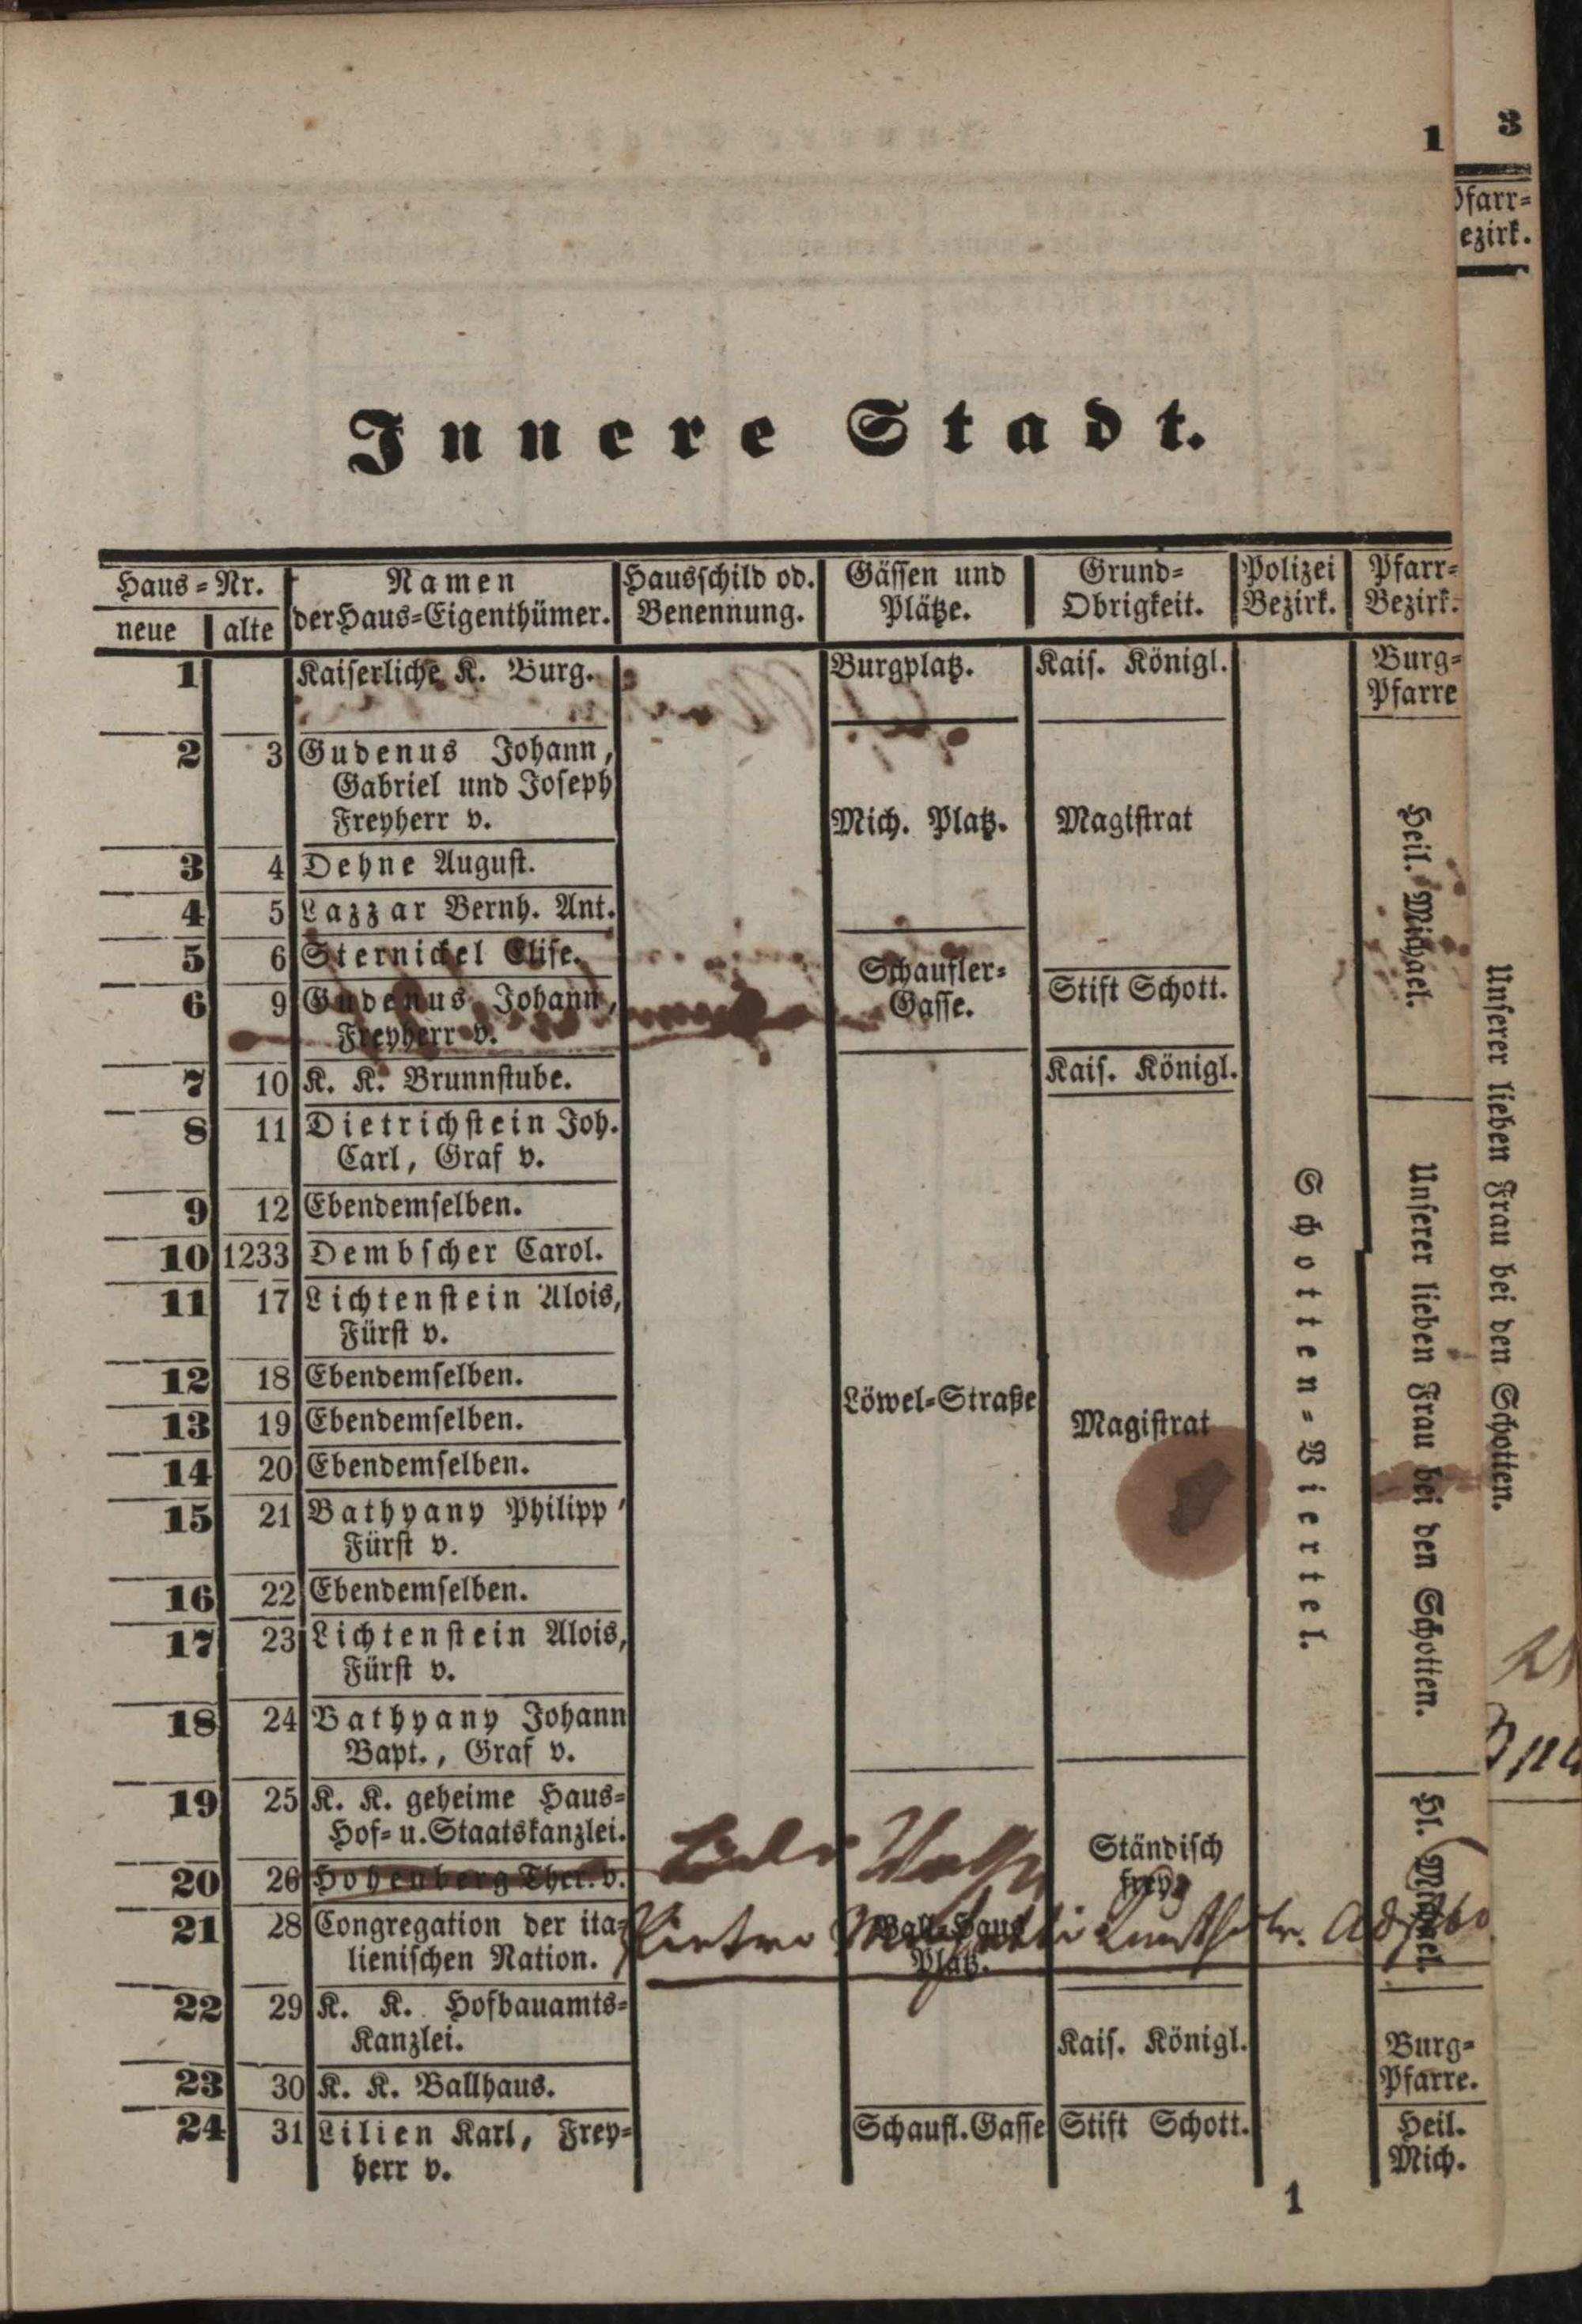 1
3
Pfarr=
Bezirk.
Innere Stadt.
Haus=Nr.
neue alte
Namen
der Haus=Eigenthümer.
Hausschild od.
Benennung.
Gässen und
Plätze.
Grund=
Obrigkeit.
Polizei
Bezirk.
Pfarr=
Bezirk.
1 Kaiserliche K. Burg. Burgplatz. Kais. Königl. Burg=
Pfarre
2 3 Gudenus Johann,
Gabriel und Joseph
Freyherr v. Mich. Platz. Magistrat
Heil. Michael.
3 4 Dehne August.
4 5 Lazzar Bernh. Ant.
5 6 Sternickel Elise. Schaufler=
6 9 Gudenus Johann, Gasse. Stift Schott.
Freyherr v.
7 10 K. K. Brunnstube. Kais. Königl.
8 11 Dietrichstein Joh.
Carl, Graf v.
9 12 Ebendemselben.
10 1233 Dembscher Carol.
11 17 Lichtenstein Alois,
Fürst v.
12 18 Ebendemselben. Löwel=Straße Magistrat
Schotten=Viertel.
Unserer lieben Frau bei den Schotten.
Unserer lieben Frau bei den Schotten.
13 19 Ebendemselben.
14 20 Ebendemselben.
15 21 Bathyany Philipp
Fürst v.
16 22 Ebendemselben.
17 23 Lichtenstein Alois,
Fürst v.
18 24 Bathyany Johann
Bapt., Graf v.
19 25 K. K. geheime Haus=
Hof= u. Staatskanzlei. Ständisch
frey.
Hl. Michael.
20 26 Hohenberg Ther. v.
21 28 Congregation der ita= Ball=Haus
lienischen Nation. Platz.
Pietro
22 29 K. K. Hofbauamts=
Kanzlei. Kais. Königl. Burg=
Pfarre.
23 30 K. K. Ballhaus.
24 31 Lilien Karl, Frey= Schaufl. Gasse Stift Schott. Heil.
herr v. Mich.
1